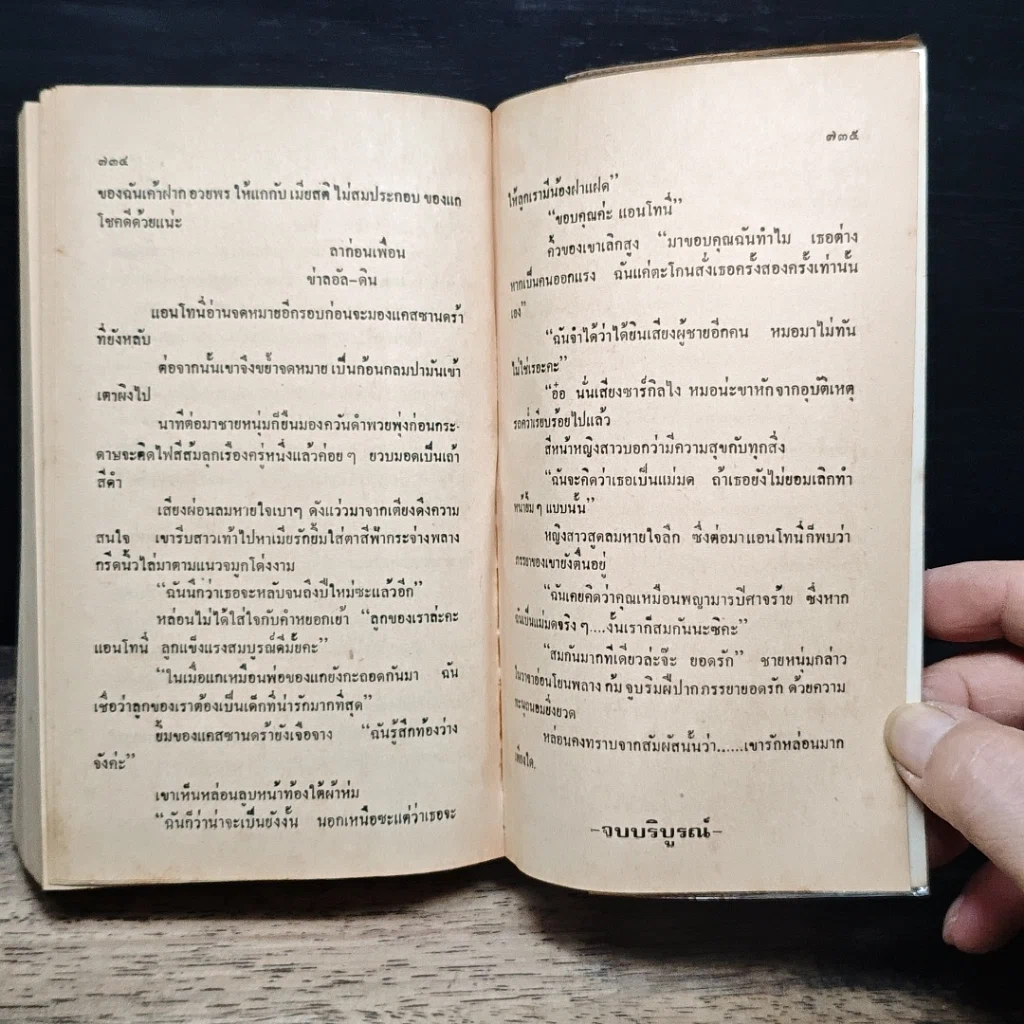 ๗๓๔
ของฉันเค้าฝาก อวยพร ให้แกกับ เมียสติ ไม่สมประกอบ ของแก
โชคดีด้วยแน่ะ
ลาก่อนเพื่อน
ข่าลอัล-ดิน
แอนโทนี่อ่านจดหมายอีกรอบก่อนจะมองแคสซานดร้า
ที่ยังหลับ
ต่อจากนั้นเขาจึงขยำจดหมาย เป็นก้อนกลมปามันเข้า
เตาผิงไป
นาทีต่อมาชายหนุ่มก็ยืนมองควันดำพวยพุ่งก่อนกระ-
ดาษจะติดไฟสีส้มลุกเรืองครู่หนึ่งแล้วค่อย ๆ ยวบมอดเป็นเถ้า
สีดำ
เสียงผ่อนลมหายใจเบาๆ ดังแว่วมาจากเตียงดึงความ
สนใจ เขารีบสาวเท้าไปหาเมียรักยิ้มใส่ตาสีฟ้ากระจ่างพลาง
กรีดนิ้วไล่มาตามแนวจมูกโด่งงาม
“ฉันนึกว่าเธอจะหลับจนถึงปีใหม่ซะแล้วอีก”
หล่อนไม่ได้ใส่ใจกับคำหยอกเย้า “ลูกของเราล่ะคะ
แอนโทนี่ ลูกแข็งแรงสมบูรณ์ดีมั้ยคะ”
“ในเมื่อแกเหมือนพ่อของแกยังกะถอดกันมา ฉัน
เชื่อว่าลูกของเราต้องเป็นเด็กที่น่ารักมากที่สุด”
ยิ้มของแคสซานดร้ายังเจือจาง “ฉันรู้สึกท้องว่าง
จังค่ะ”
เขาเห็นหล่อนลูบหน้าท้องใต้ผ้าห่ม
“ฉันก็ว่าน่าจะเป็นยังงั้น นอกเหนือซะแต่ว่าเธอจะ
๗๓๕
ให้ลูกเรามีน้องฝาแฝด”
“ขอบคุณค่ะ แอนโทนี่”
คิ้วของเขาเลิกสูง “มาขอบคุณฉันทำไม เธอต่าง
หากเป็นคนออกแรง ฉันแค่ตะโกนสั่งเธอครั้งสองครั้งเท่านั้น
เอง”
“ฉันจำได้ว่าได้ยินเสียงผู้ชายอีกคน หมอมาไม่ทัน
ไม่ใช่เรอะคะ”
“อ๋อ นั่นเสียงซาร์กิลไง หมอน่ะขาหักจากอุบัติเหตุ
รถคว่ำเรียบร้อยไปแล้ว
สีหน้าหญิงสาวบอกว่ามีความสุขกับทุกสิ่ง
“ฉันจะคิดว่าเธอเป็นแม่มด ถ้าเธอยังไม่ยอมเลิกทำ
หน้ายิ้ม ๆ แบบนั้น”
หญิงสาวสูดลมหายใจลึก ซึ่งต่อมาแอนโทนี่ก็พบว่า
ภรรยาของเขายังตื่นอยู่
“ฉันเคยคิดว่าคุณเหมือนพญามารปีศาจร้าย ซึ่งหาก
ฉันเป็นแม่มดจริง ๆ....งั้นเราก็สมกันนะซิคะ”
“สมกันมากทีเดียวล่ะจ๊ะ ยอดรัก” ชายหนุ่มกล่าว
ในวาจาอ่อนโยนพลาง ก้ม จูบริมฝีปาก ภรรยายอดรัก ด้วยความ
ทะนุถนอมยิ่งยวด
หล่อนคงทราบจากสัมผัสนั้นว่า......เขารักหล่อนมาก
เพียงใด.
-จบบริบูรณ์-